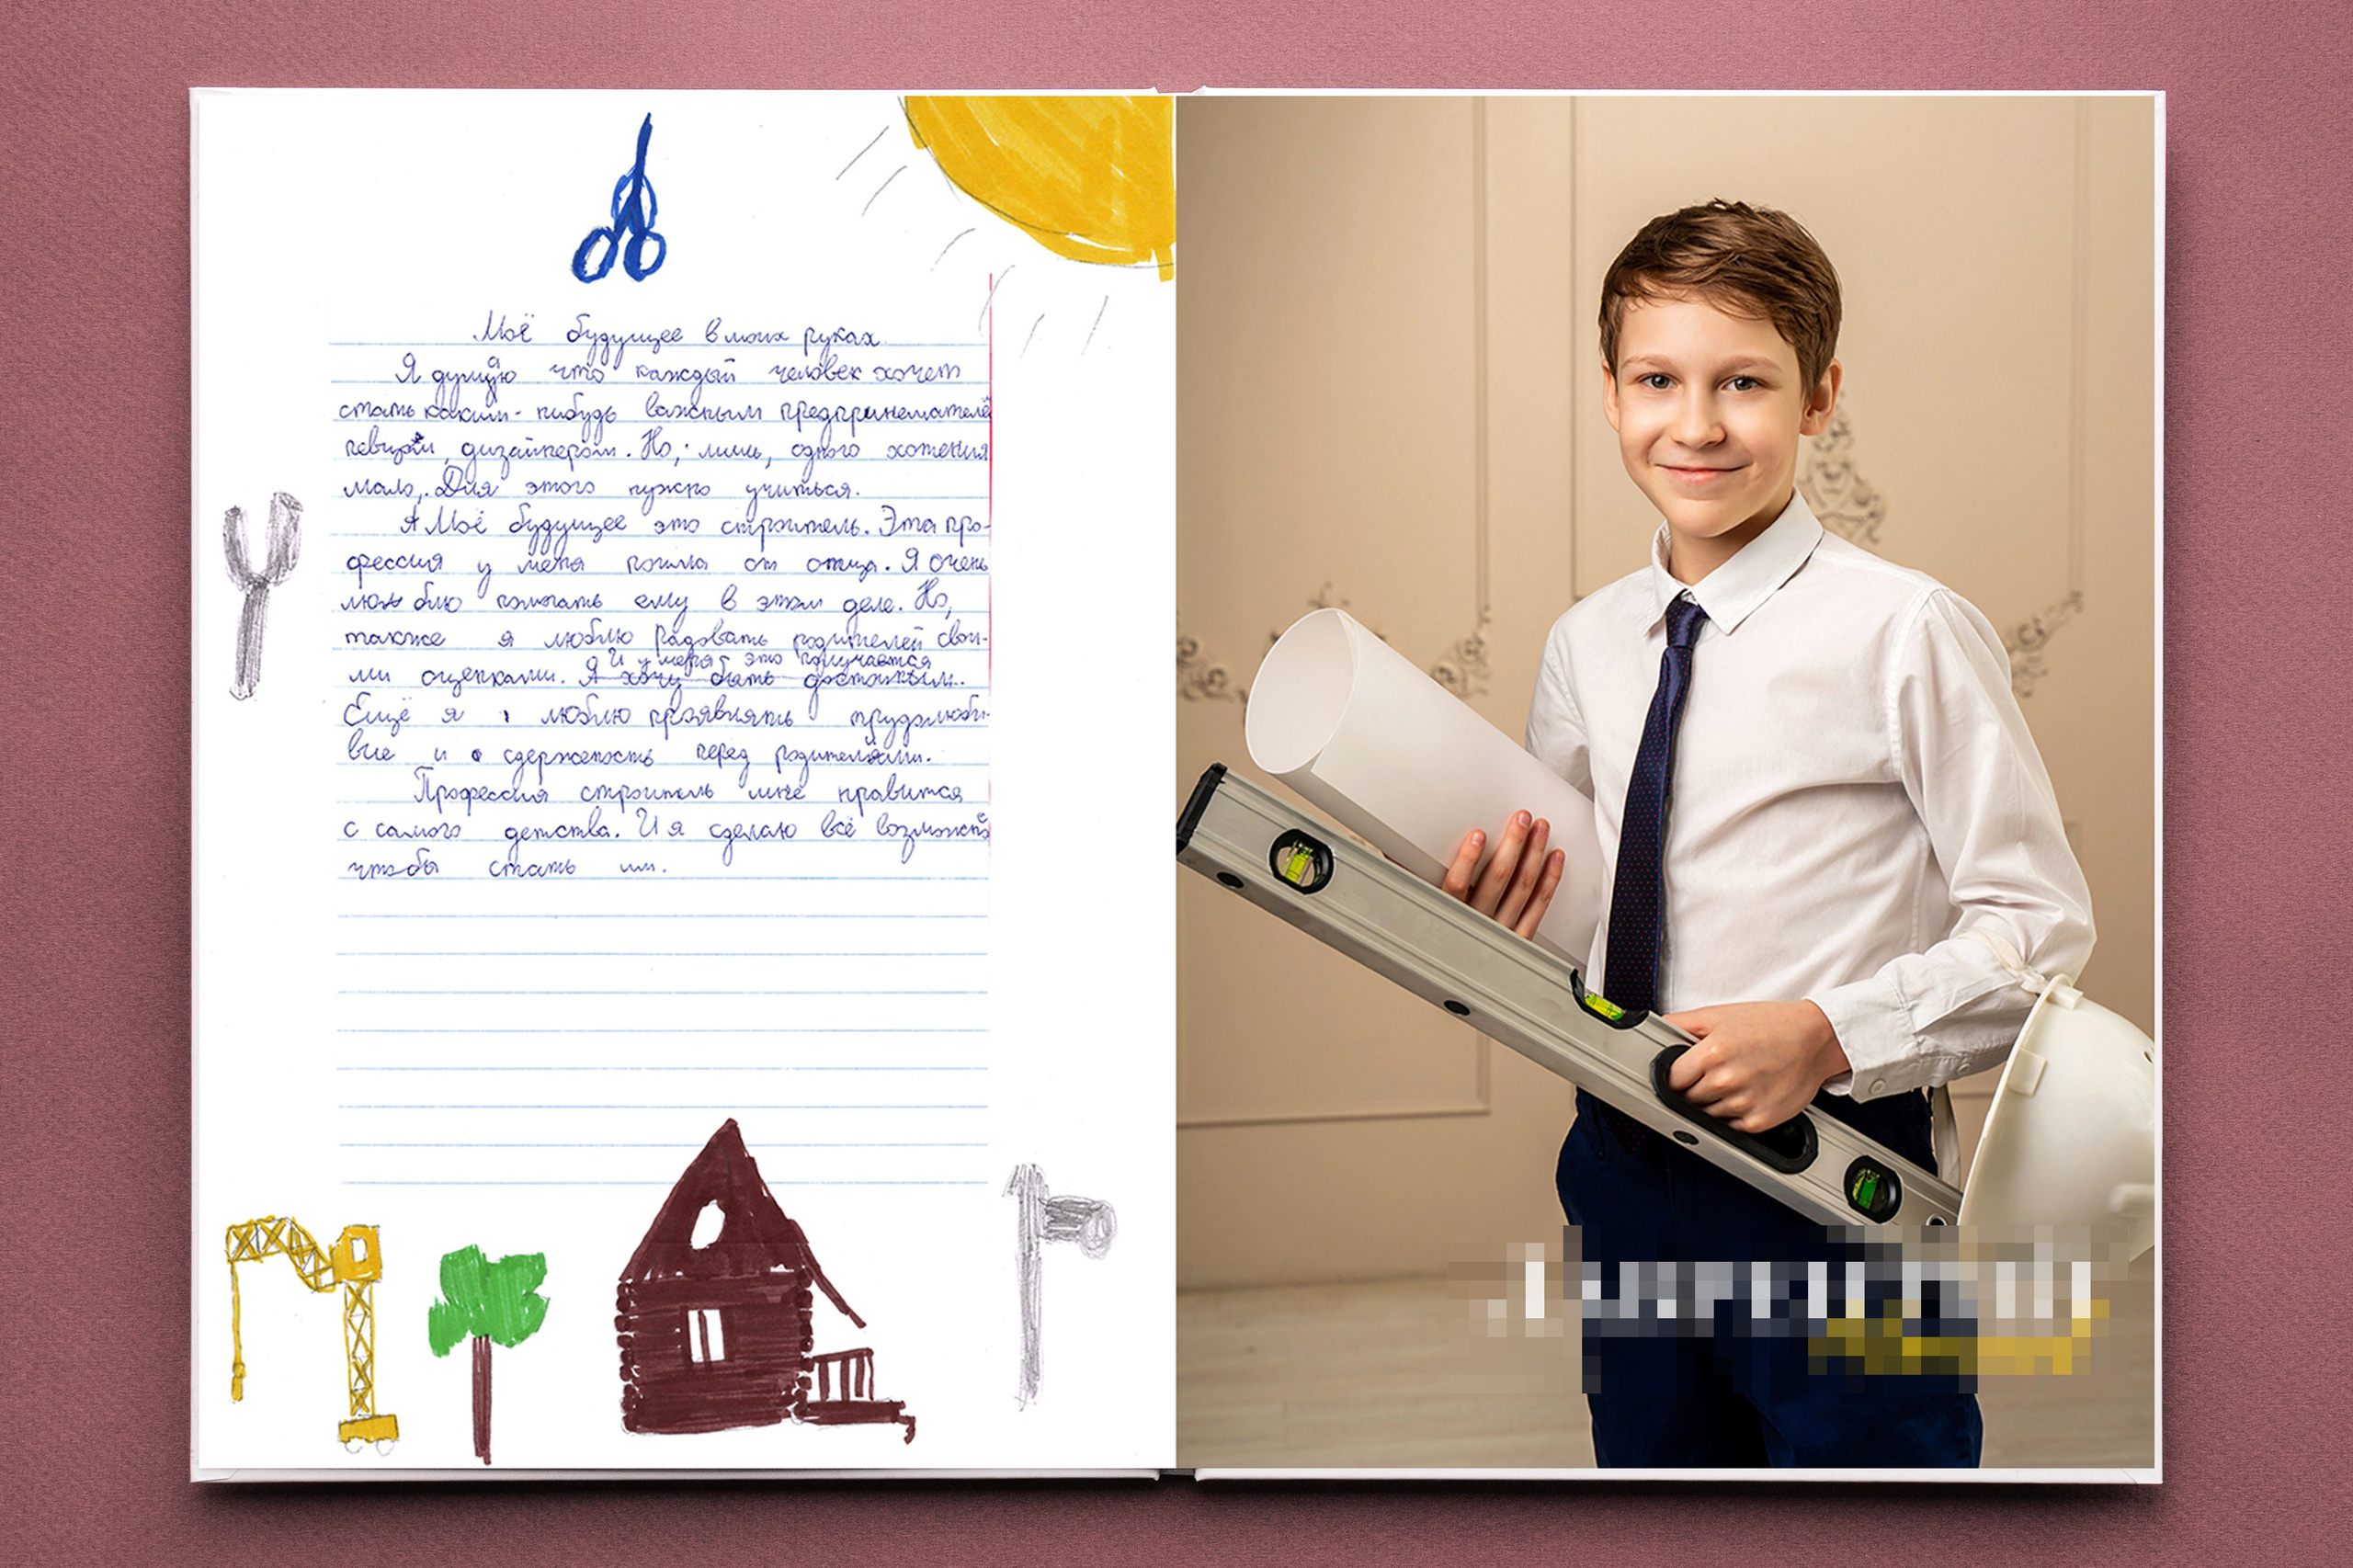 Моё будущее в моих руках
Я думаю что каждый человек хочет
стать каким-нибудь важным предпринемателе
певцом, дизайнером. Но, лишь, одного хотения
мало,. Для этого нужно учиться.
Я Моё будущее это строитель. Эта про-
фессия у меня пошла от отца. Я очень
люблю помогать ему в этом деле. Но,
также я люблю радовать родителей сво-
И у меня это получается
ми оценками. Я хочу быть достойным.
Ещё я люблю проявлять трудолюби-
вие и сдержетость перед родителями.
Профессия строитель мне нравится
с самого детства. И я сделаю всё возможно
чтобы стать им.